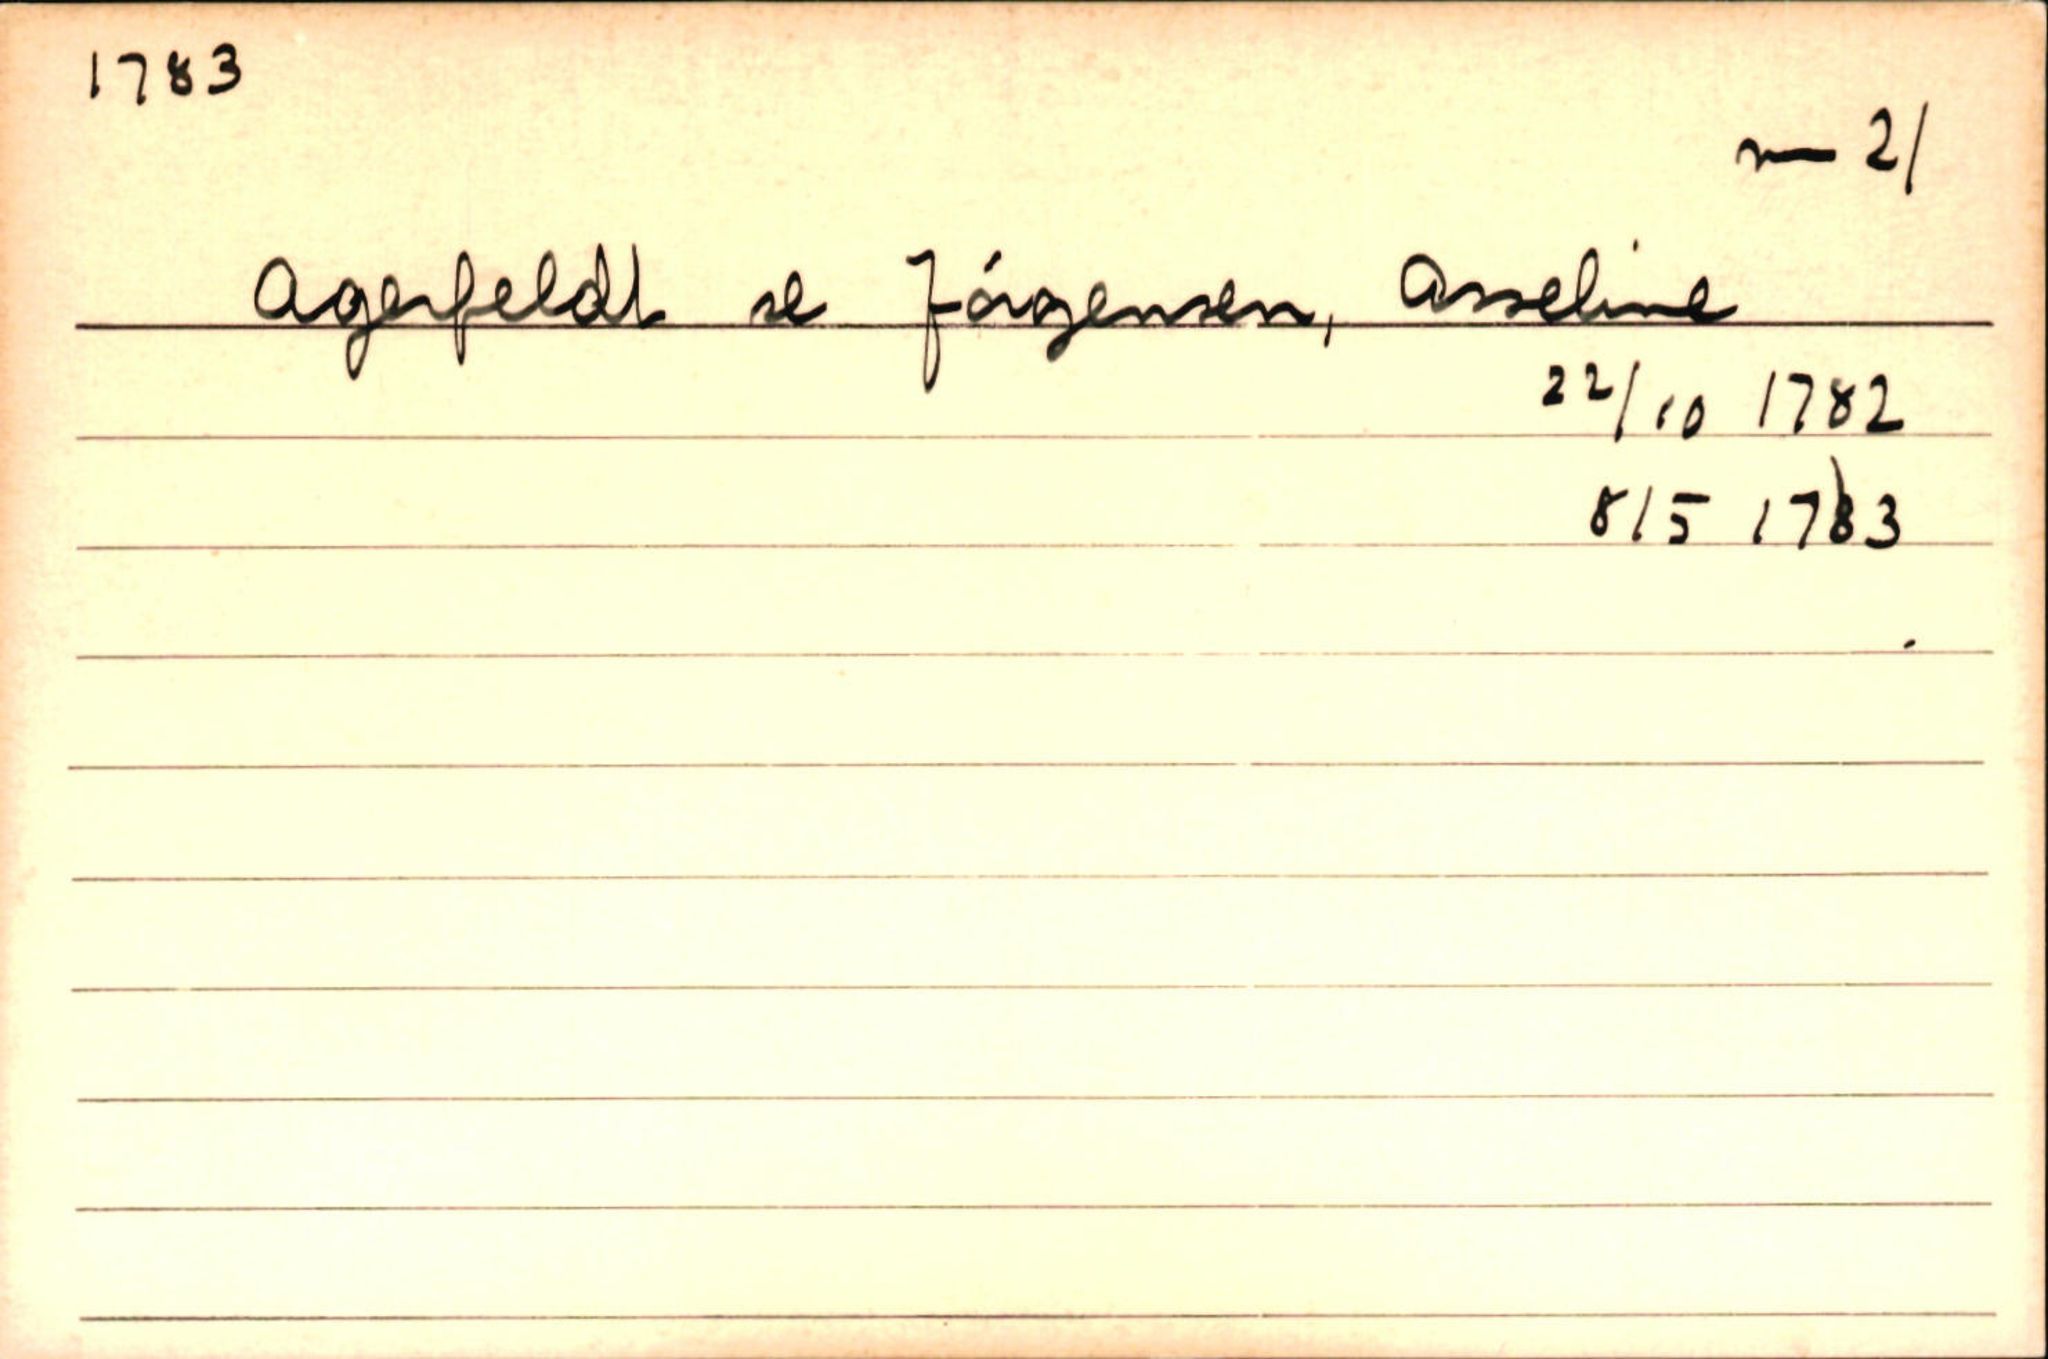 1783
m — 21
Agerfeldt se Jórgensen, Asseline
22/10 1782
8/5 1783